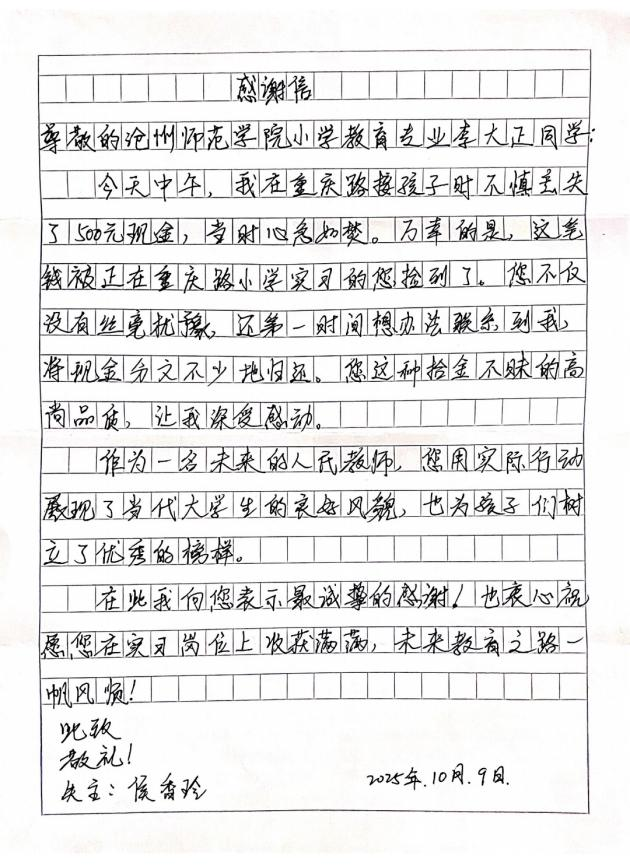 感谢信
尊敬的沧州师范学院小学教育专业李大正同学:
今天中午，我在重庆路接孩子时不慎丢失
了500元现金，当时心急如焚。万幸的是，这笔
钱被正在重庆路小学实习的您捡到了。您不仅
没有丝毫犹豫，还第一时间想办法联系到我，
将现金分文不少地归还。您这种拾金不昧的高
尚品质，让我深受感动。
作为一名未来的人民教师，您用实际行动
展现了当代大学生的良好风貌，也为孩子们树
立了优秀的榜样。
在此我向您表示最诚挚的感谢！也衷心祝
愿您在实习岗位上收获满满，未来教育之路一
帆风顺！
此致
敬礼！
失主：侯香玲
2025年.10月.9日.